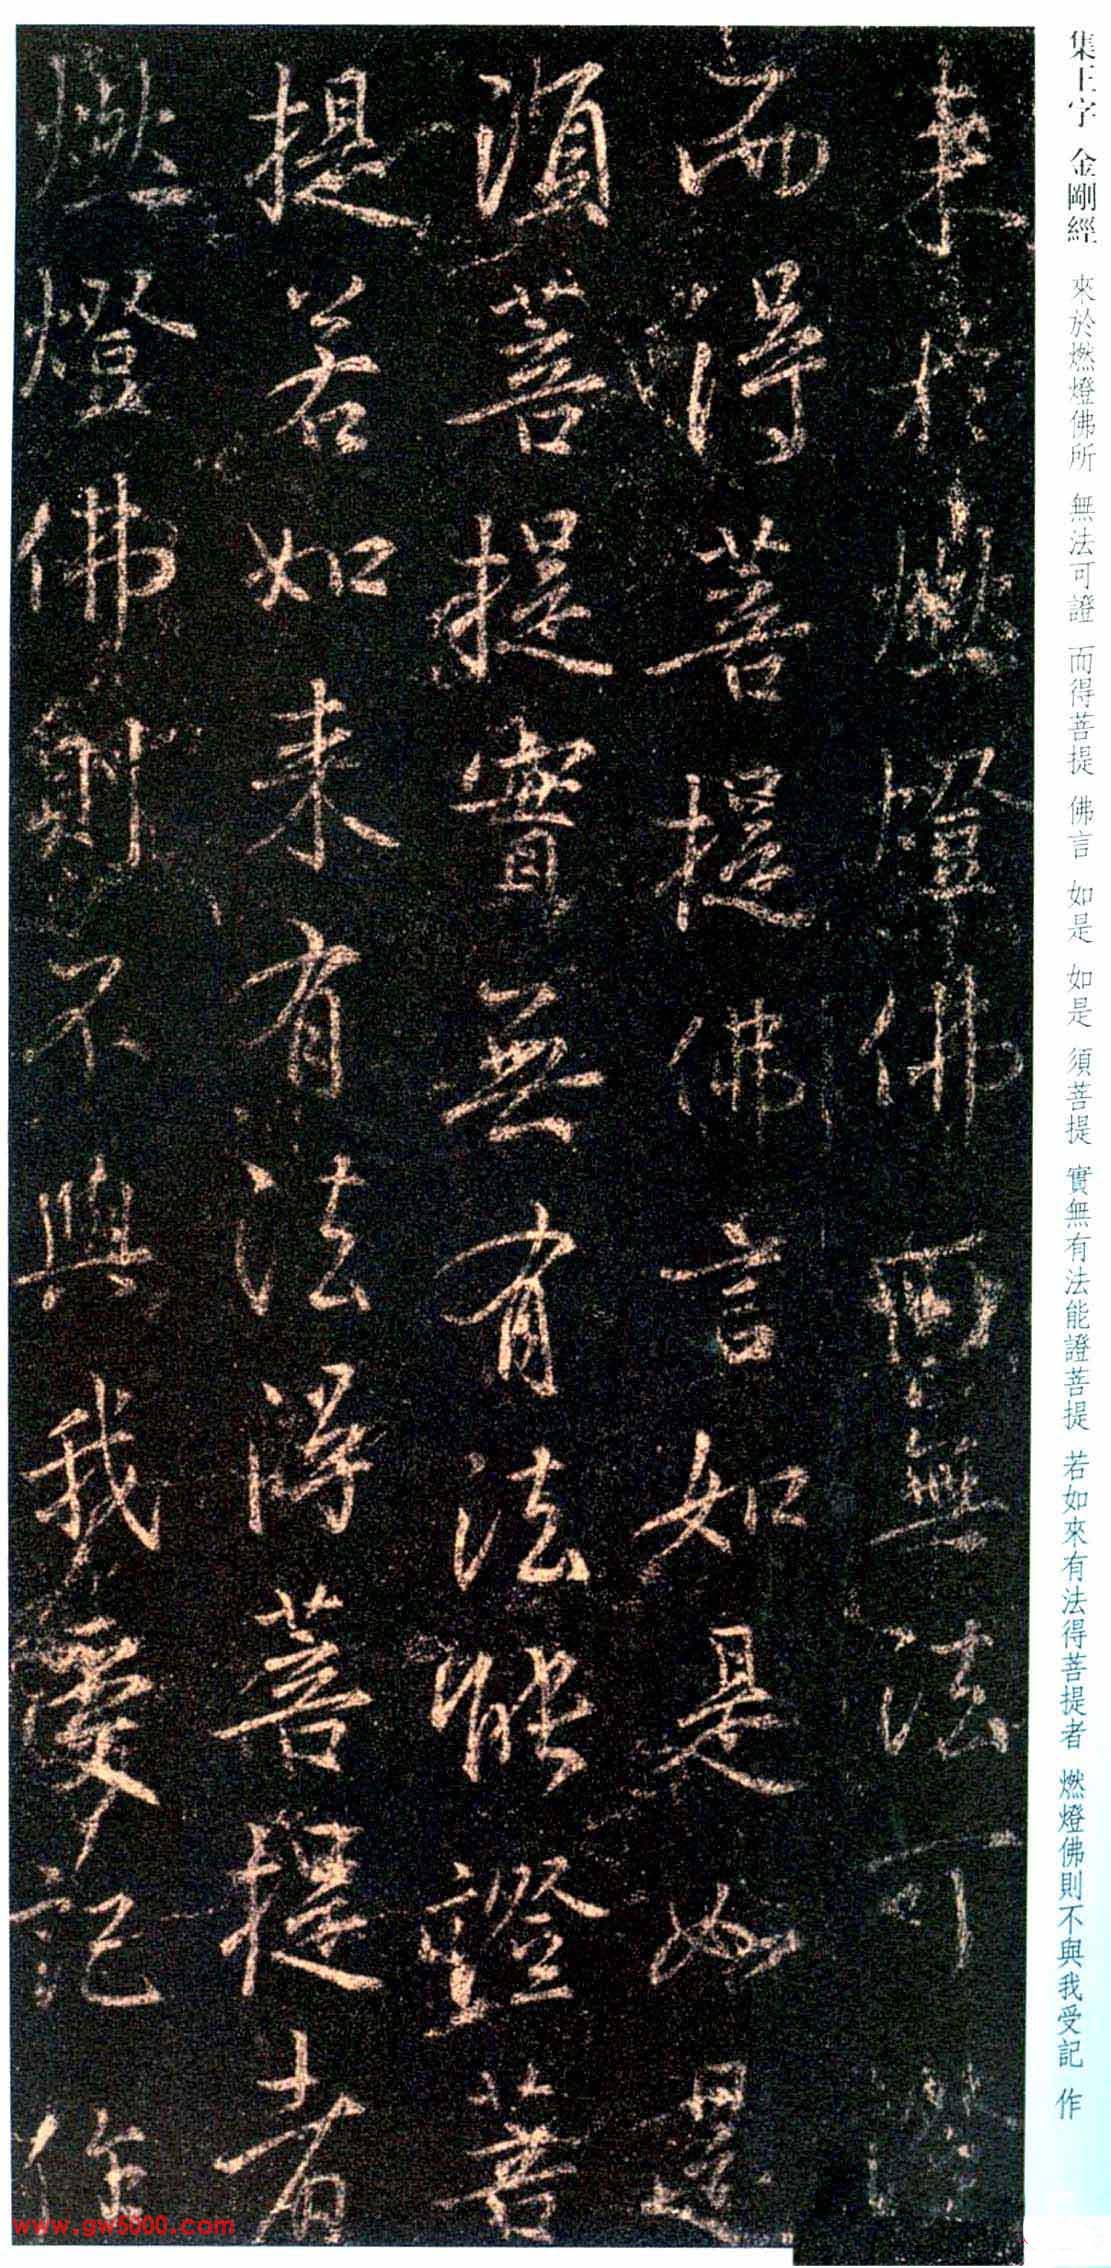 集王字 金剛經 來於燃燈佛所 無法可證 而得菩提 佛言 如是 如是 須菩提 實無有法能證菩提 若如來有法得菩提者 燃燈佛則不與我受記 作
来於燃燈佛所無法可證
而得菩提佛言如是如是
須菩提實無有法能證菩
提若如来有法得菩提者
燃燈佛則不與我受記作
www.gw5000.com